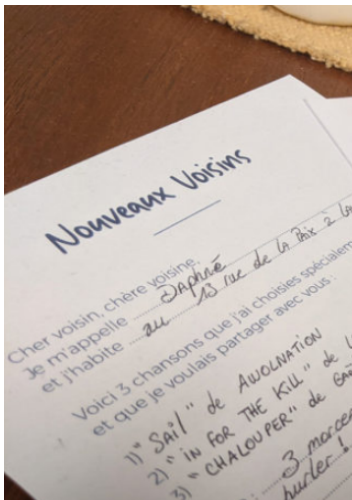 Nouveaux Voisins
Cher voisin, chère voisine,
Je m'appelle Daphné
et j'habite au 13 rue de la Paix à
Voici 3 chansons que j'ai choisies
et que je voulais partager avec vous :
1) "SAIL" de AWOLNATION
2) "IN FOR THE KILL" de
3) "CHALOUPER" de
3
hurler !